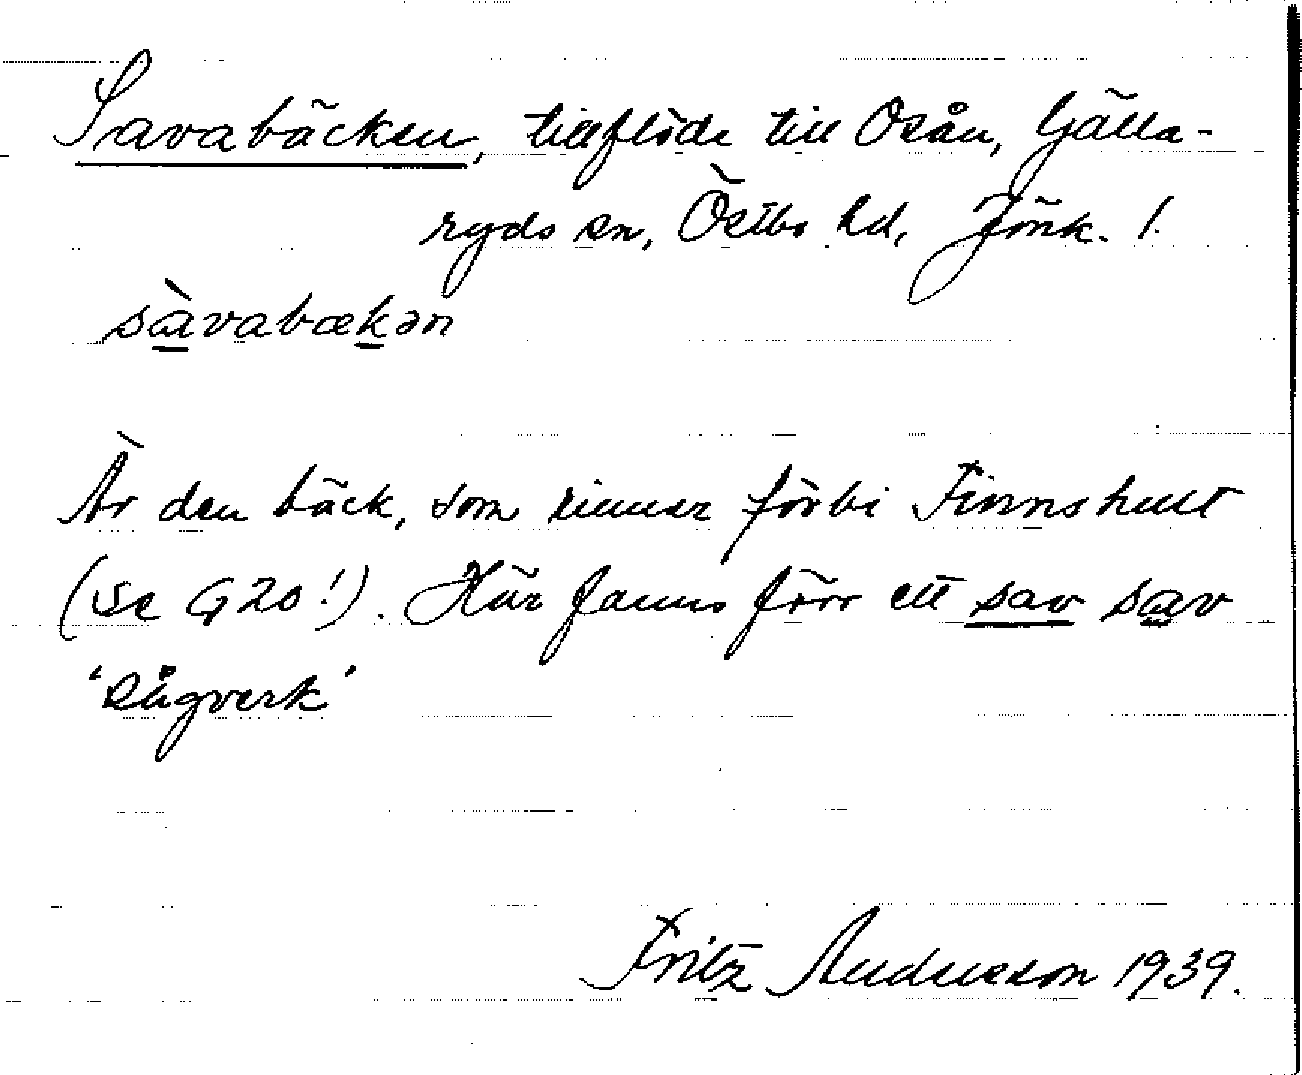 Savabäcken, tillflöde till Osån, Gälla-
ryds sn, Östbo hd, Jönk. l.
sàvabækən
Är den bäck, som rinner förbi Finnshult
(se G 20!). Här fanns förr ett sav sav
'sågverk'
Fritz Andersson 1939.